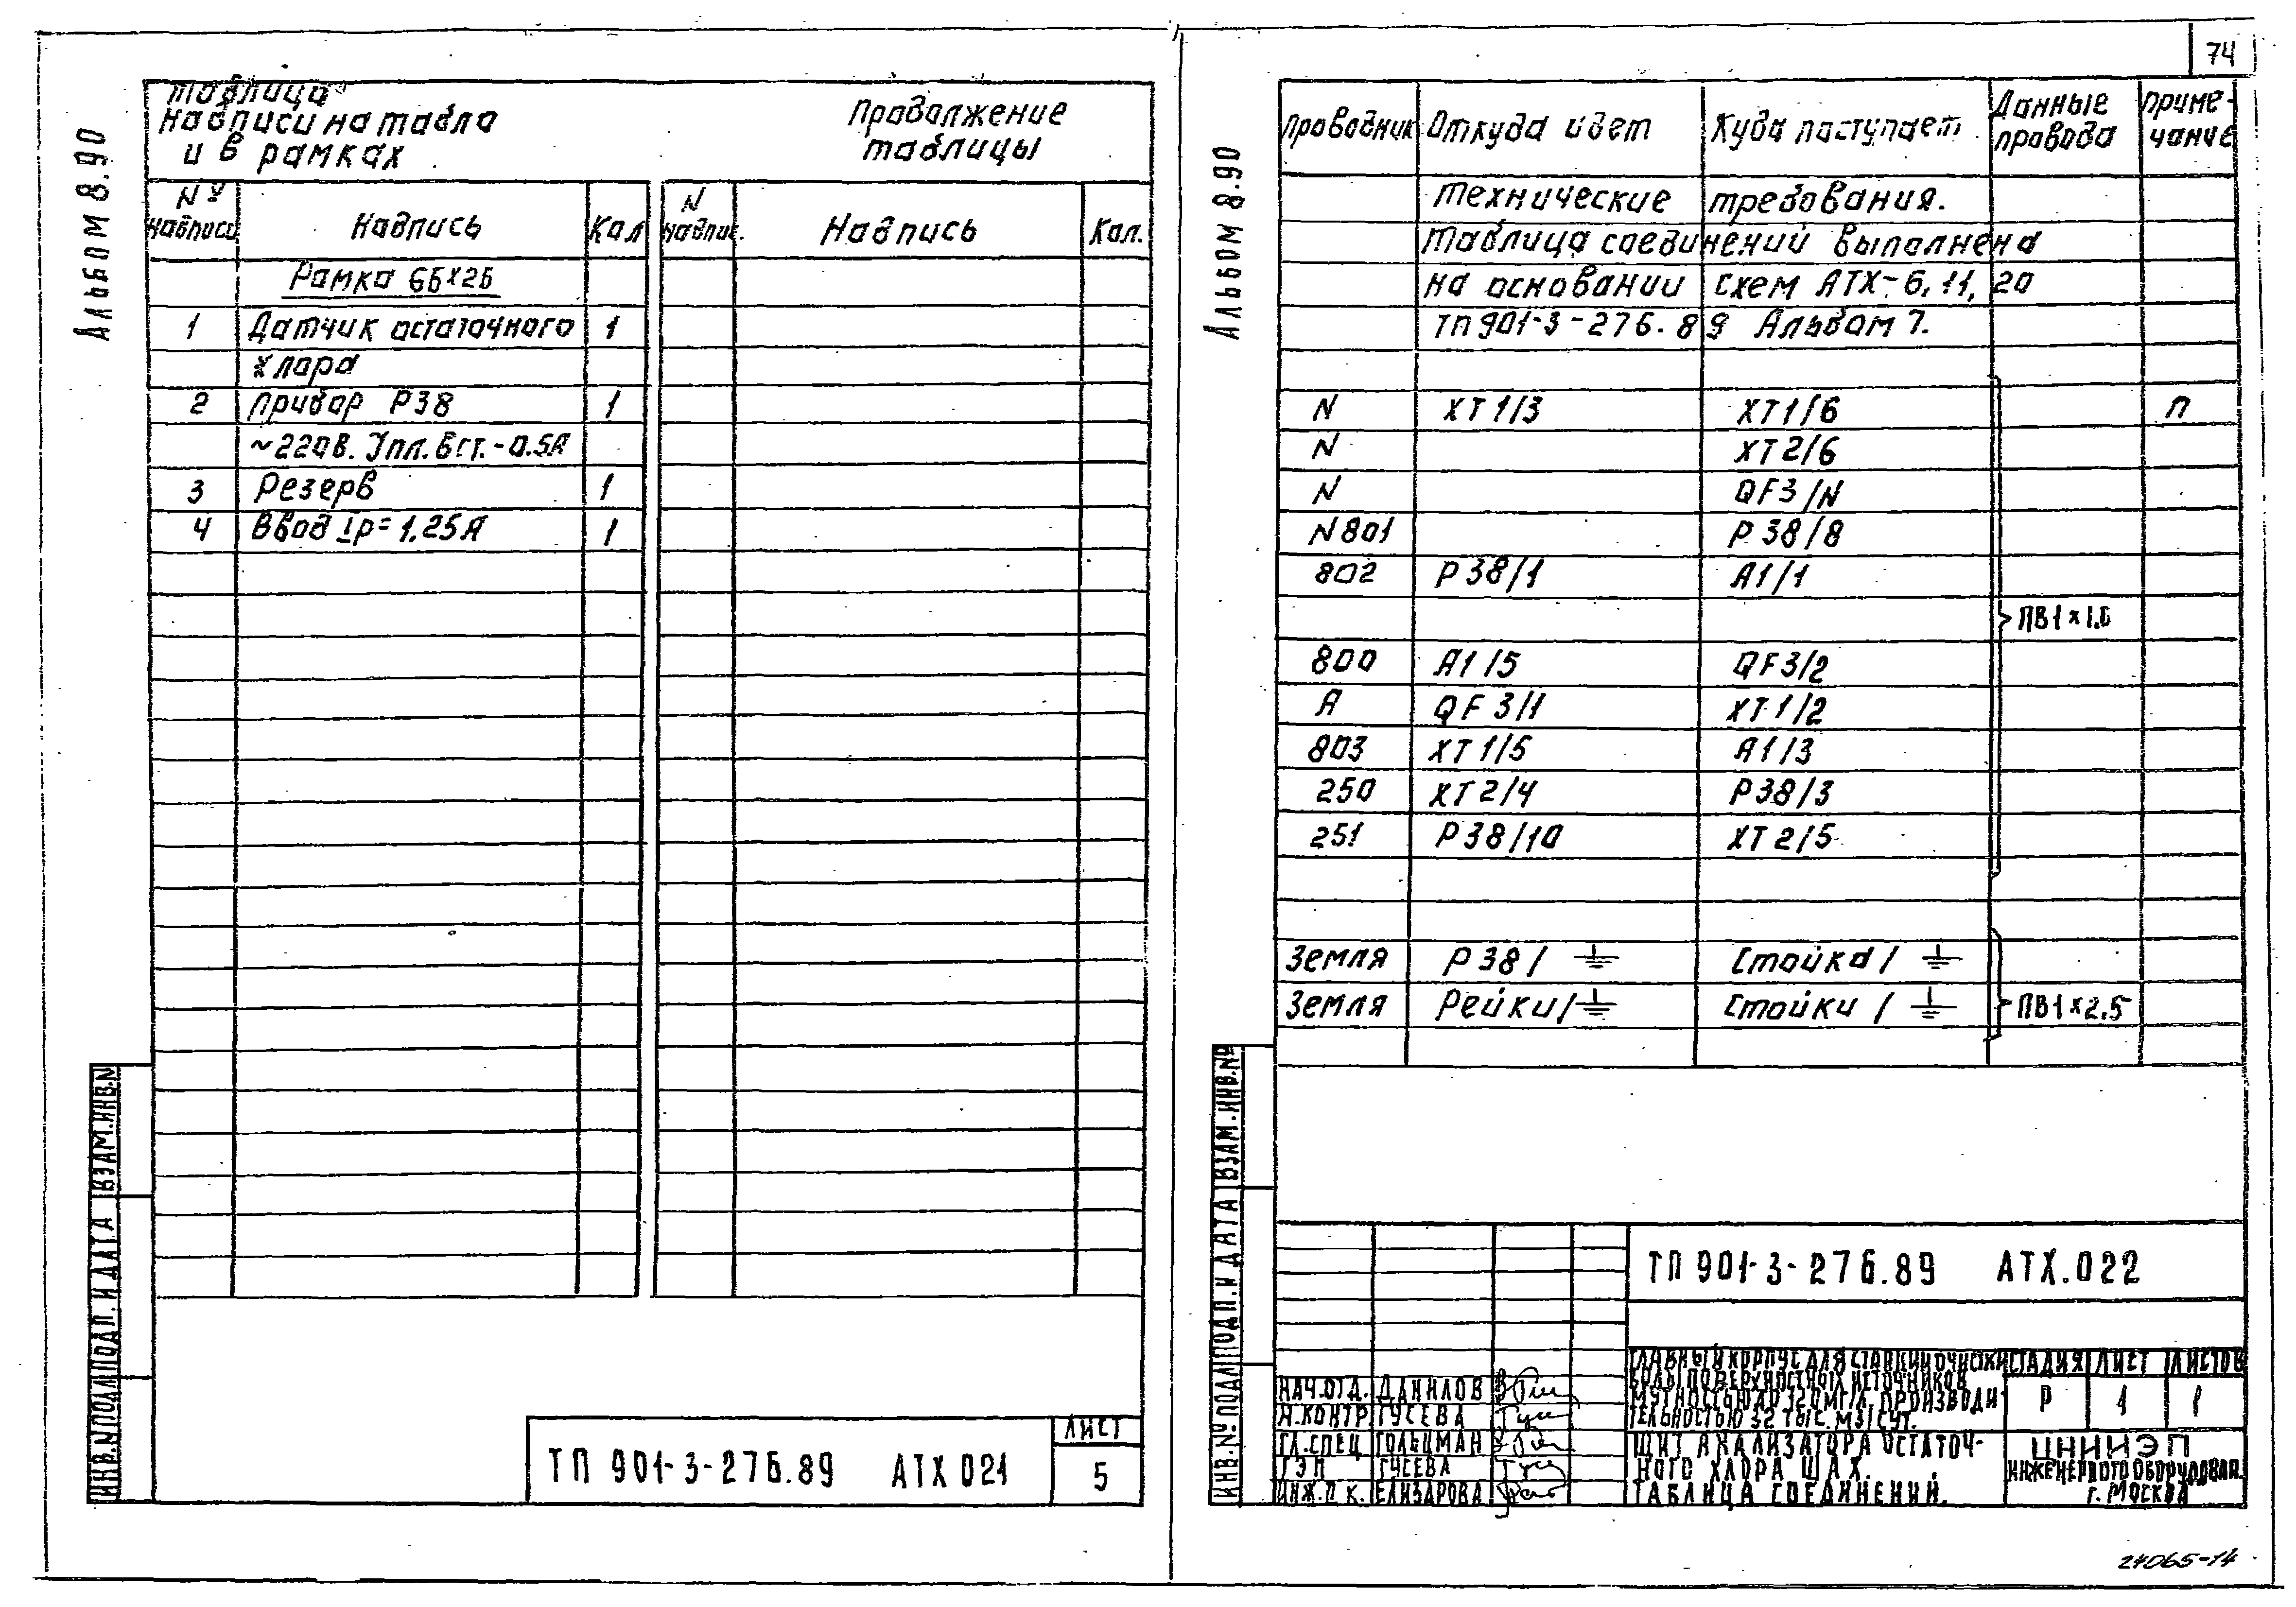 74
Альбом 8.90
Таблица
Надписи на табло
и в рамках
Продолжение
таблицы
№ надписи
Надпись
Кол
N надпис.
Надпись
Кол.
Рамка 66×26
1 Датчик остаточного 1
хлора
2 Прибор Р38 1
~220В. Iпл.вст.-0.5А
3 Резерв 1
4 Ввод Iр=1.25А 1
ВЗАМ.ИНВ.N
ПОДП.И ДАТА
ИНВ.N ПОДЛ
ТП 901-3-276.89 АТХ 021
ЛИСТ
5
Альбом 8.90
Проводник Откуда идет Куда поступает Данные провода Примечание
Технические требования.
Таблица соединений выполнена
на основании схем АТХ-6, 11, 20
ТП901-3-276.89 Альбом 7.
N ХТ1/3 ХТ1/6 П
N ХТ2/6
N QF3/N
N801 Р38/8
802 Р38/1 А1/1
ПВ1×1.0
800 А1/5 QF3/2
А QF3/1 ХТ1/2
803 ХТ1/5 А1/3
250 ХТ2/4 Р38/3
251 Р38/10 ХТ2/5
Земля Р38/⏚ Стойка/⏚
Земля Рейки/⏚ Стойки/⏚ ПВ1×2.5
ВЗАМ.ИНВ.№
ПОДП.И ДАТА
ИНВ.№ ПОДЛ
ТП 901-3-276.89 АТХ.022
ГЛАВНЫЙ КОРПУС ДЛЯ СТАНЦИИ ОЧИСТКИ
ВОДЫ ПОВЕРХНОСТНЫХ ИСТОЧНИКОВ
МУТНОСТЬЮ ДО 120МГ/Л, ПРОИЗВОДИ
ТЕЛЬНОСТЬЮ 32 ТЫС. М3/СУТ.
СТАДИЯ ЛИСТ ЛИСТОВ
Р 1 1
НАЧ.ОТД. ДАНИЛОВ
Н.КОНТР ГУСЕВА
ГЛ.СПЕЦ ГОЛЬЦМАН
ГЭП ГУСЕВА
ИНЖ.П К. ЕЛИЗАРОВА
ЩИТ АНАЛИЗАТОРА ОСТАТОЧ-
НОГО ХЛОРА ЩАХ.
ТАБЛИЦА СОЕДИНЕНИЙ.
ЦНИИЭП
ИНЖЕНЕРНОГО ОБОРУДОВАН.
Г. МОСКВА
24065-14